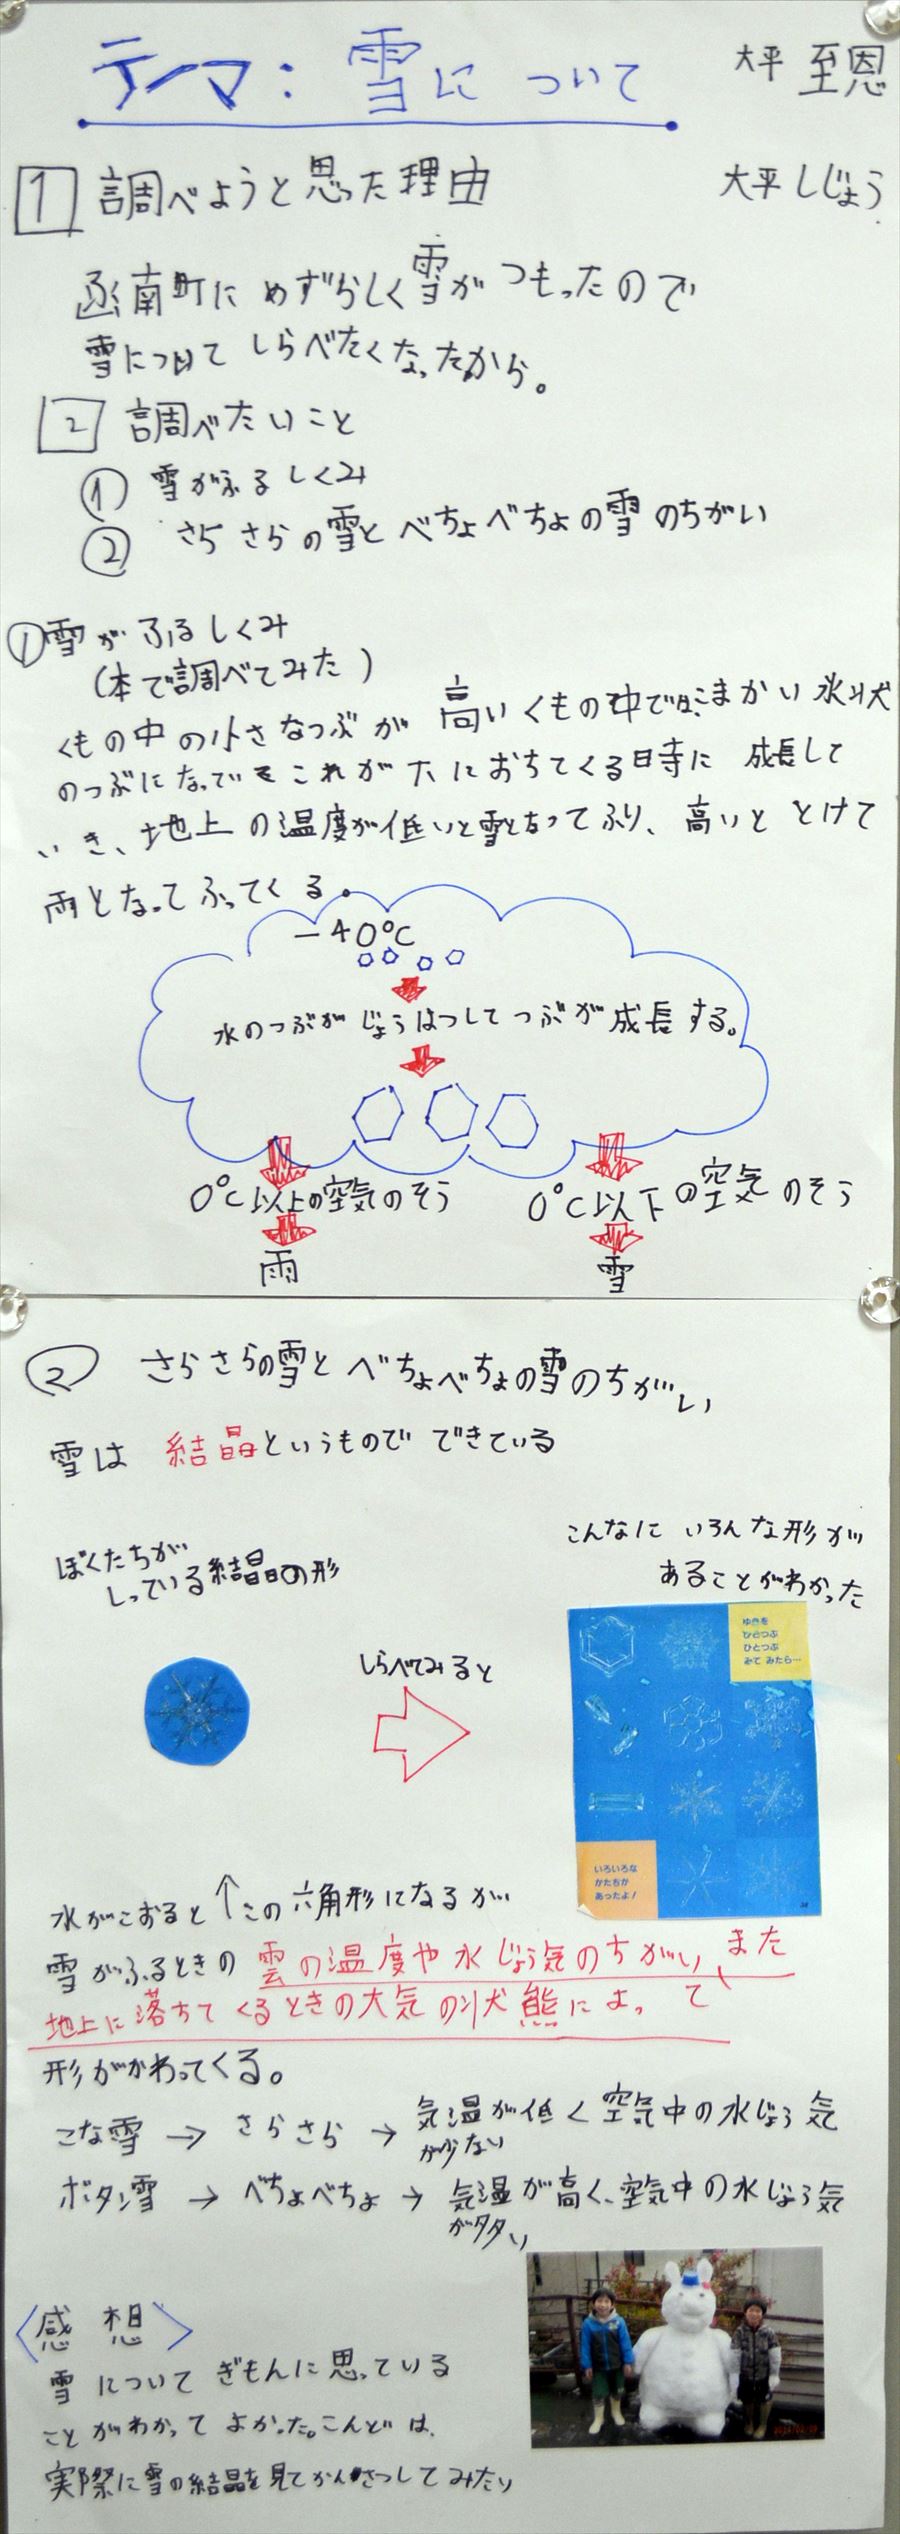 テーマ：雪について
大平 至恩
大平 しじょう
1 調べようと思った理由
函南町にめずらしく雪がつもったので
雪について しらべたくなったから。
2 調べたいこと
① 雪がふるしくみ
② さらさらの雪とべちょべちょの雪のちがい
①雪がふるしくみ
(本で調べてみた)
くもの中の小さなつぶが 高いくもの中でこまかい氷状
のつぶになって これが下におちてくる時に 成長して
いき、地上の温度が低いと雪となってふり、高いと とけて
雨となってふってくる。
－40℃
水のつぶがじょうはつしてつぶが成長する。
0℃以上の空気のそう
0℃以下の空気のそう
雨
雪
② さらさらの雪とべちょべちょの雪のちがい
雪は 結晶というもので できている
ぼくたちが
しっている結晶の形
しらべてみると
こんなに いろんな形が
あることがわかった
ゆきを
ひとつぶ
ひとつぶ
みて みたら…
いろいろな
かたちが
あったよ!
水がこおると↑この六角形になるが
雪がふるときの 雲の温度や水じょう気のちがい、また
地上に落ちてくるときの大気の状熊によって
形がかわってくる。
こな雪 → さらさら → 気温が低く空気中の水じょう気
が少ない
ボタン雪 → べちょべちょ → 気温が高く、空気中の水じょう気
が多い
〈感想〉
雪についてぎもんに思っている
ことがわかってよかった。こんどは、
実際に雪の結晶を見てかんさつしてみたい
2014/02/09